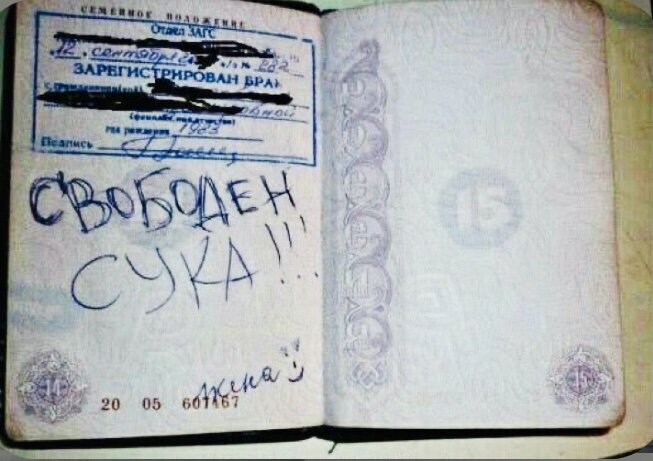 СЕМЕЙНОЕ ПОЛОЖЕНИЕ
Отдел ЗАГС
12 сентября
а/з № 282
ЗАРЕГИСТРИРОВАН БРАК
(фамилия, имя, отчество)
год рождения 1983
Подпись
СВОБОДЕН
СУКА!!!
жена
15
14
20 05 607467
15